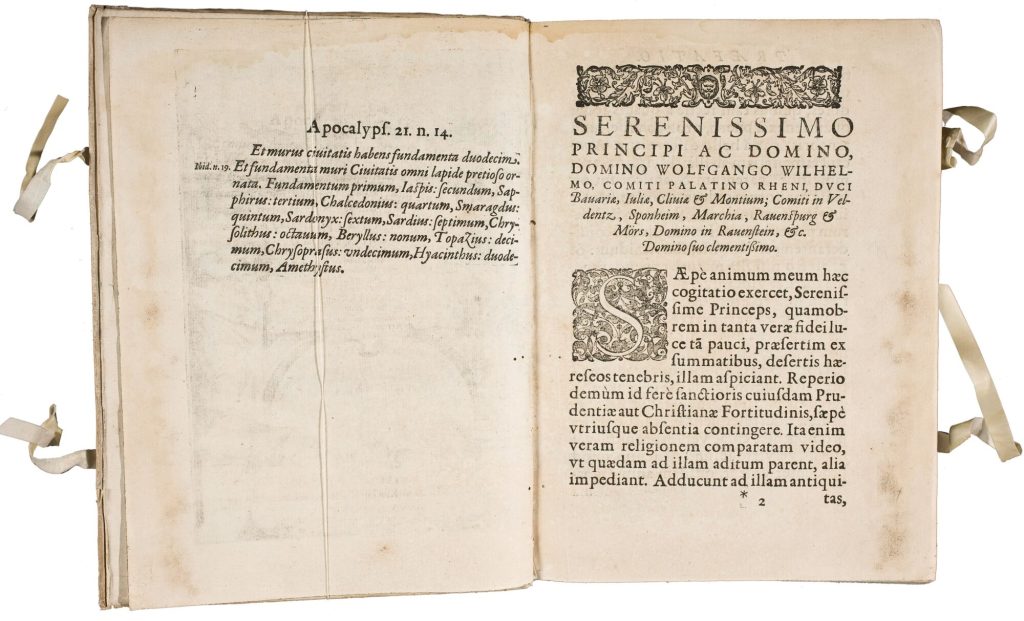 Apocalypſ. 21. n. 14.
Et murus ciuitatis habens fundamenta duodecim.
Ibid. n. 19. Et fundamenta muri Ciuitatis omni lapide pretioso or-
nata. Fundamentum primum, Iaſpis: ſecundum, Sap-
phirus: tertium, Chalcedonius: quartum, Smaragdus:
quintum, Sardonyx: ſextum, Sardius: ſeptimum, Chry-
ſolithus: octauum, Beryllus: nonum, Topazius: deci-
mum, Chryſopraſus: vndecimum, Hyacinthus: duode-
cimum, Amethyſtus.
SERENISSIMO
PRINCIPI AC DOMINO,
DOMINO WOLFGANGO WILHEL-
MO, COMITI PALATINO RHENI, DVCI
Bauariæ, Iuliæ, Cliuiæ & Montium; Comiti in Vel-
dentz, Sponheim, Marchia, Rauenſpurg &
Mörs, Domino in Rauenſtein, &c.
Domino ſuo clementiſſimo.
SÆpè animum meum hæc
cogitatio exercet, Sereniſ-
ſime Princeps, quamob-
rem in tanta veræ fidei lu-
ce tā pauci, præſertim ex
ſummatibus, deſertis hæ-
reſeos tenebris, illam aſpiciant. Reperio
demùm id ferè ſanctioris cuiuſdam Pru-
dentiæ aut Chriſtianæ Fortitudinis, ſæpè
vtriuſque abſentia contingere. Ita enim
veram religionem comparatam video,
vt quædam ad illam aditum parent, alia
impediant. Adducunt ad illam antiqui-
* 2 tas,